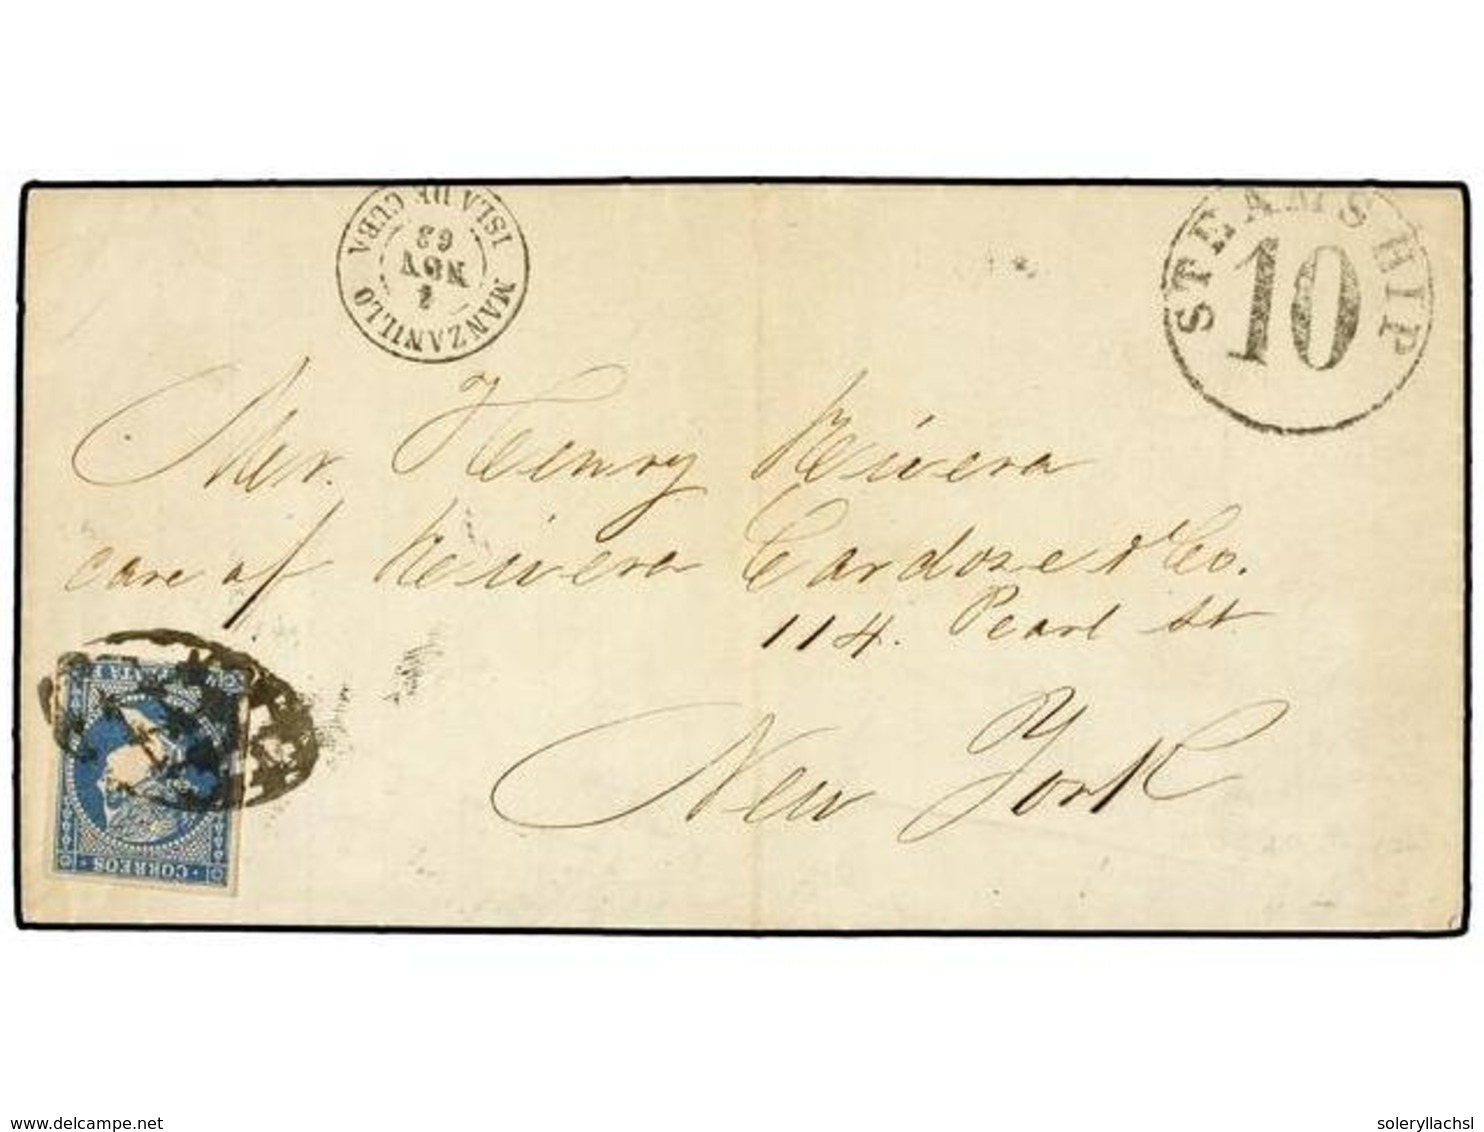 MANZANILLO
NOV
63
ISLA DE CUBA
STEAMSHIP
10
Mr. Henry Rivera
care of Rivera Cardoze & Co.
114. Pearl St
New York
CORREOS
www.delcampe.net
soleryllachsl